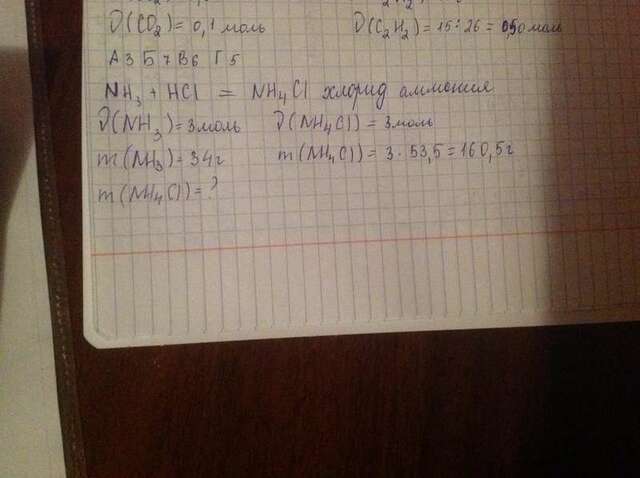 ν(CO₂) = 0,1 моль ν(C₂H₂) = 15 : 26 = 0,50 моль
А 3 Б 7 В 6 Г 5
NH₃ + HCl = NH₄Cl хлорид аммония
ν(NH₃) = 3 моль ν(NH₄Cl) = 3 моль
m(NH₃) = 34 г m(NH₄Cl) = 3 · 53,5 = 160,5 г
m(NH₄Cl) = ?